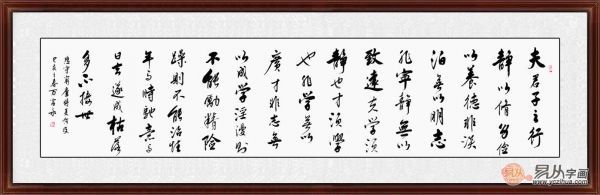 夫君子之行
静以修身俭
以养德非淡
泊无以明志
非宁静无以
致远夫学须
静也才须學
也非学无以
广才非志无
以成学淫漫则
不能励精险
躁则不能治性
年与时驰意与
日去遂成枯落
多不接世
悲守穷庐将复何及
己亥之春
易从字画
www.yczihua.com